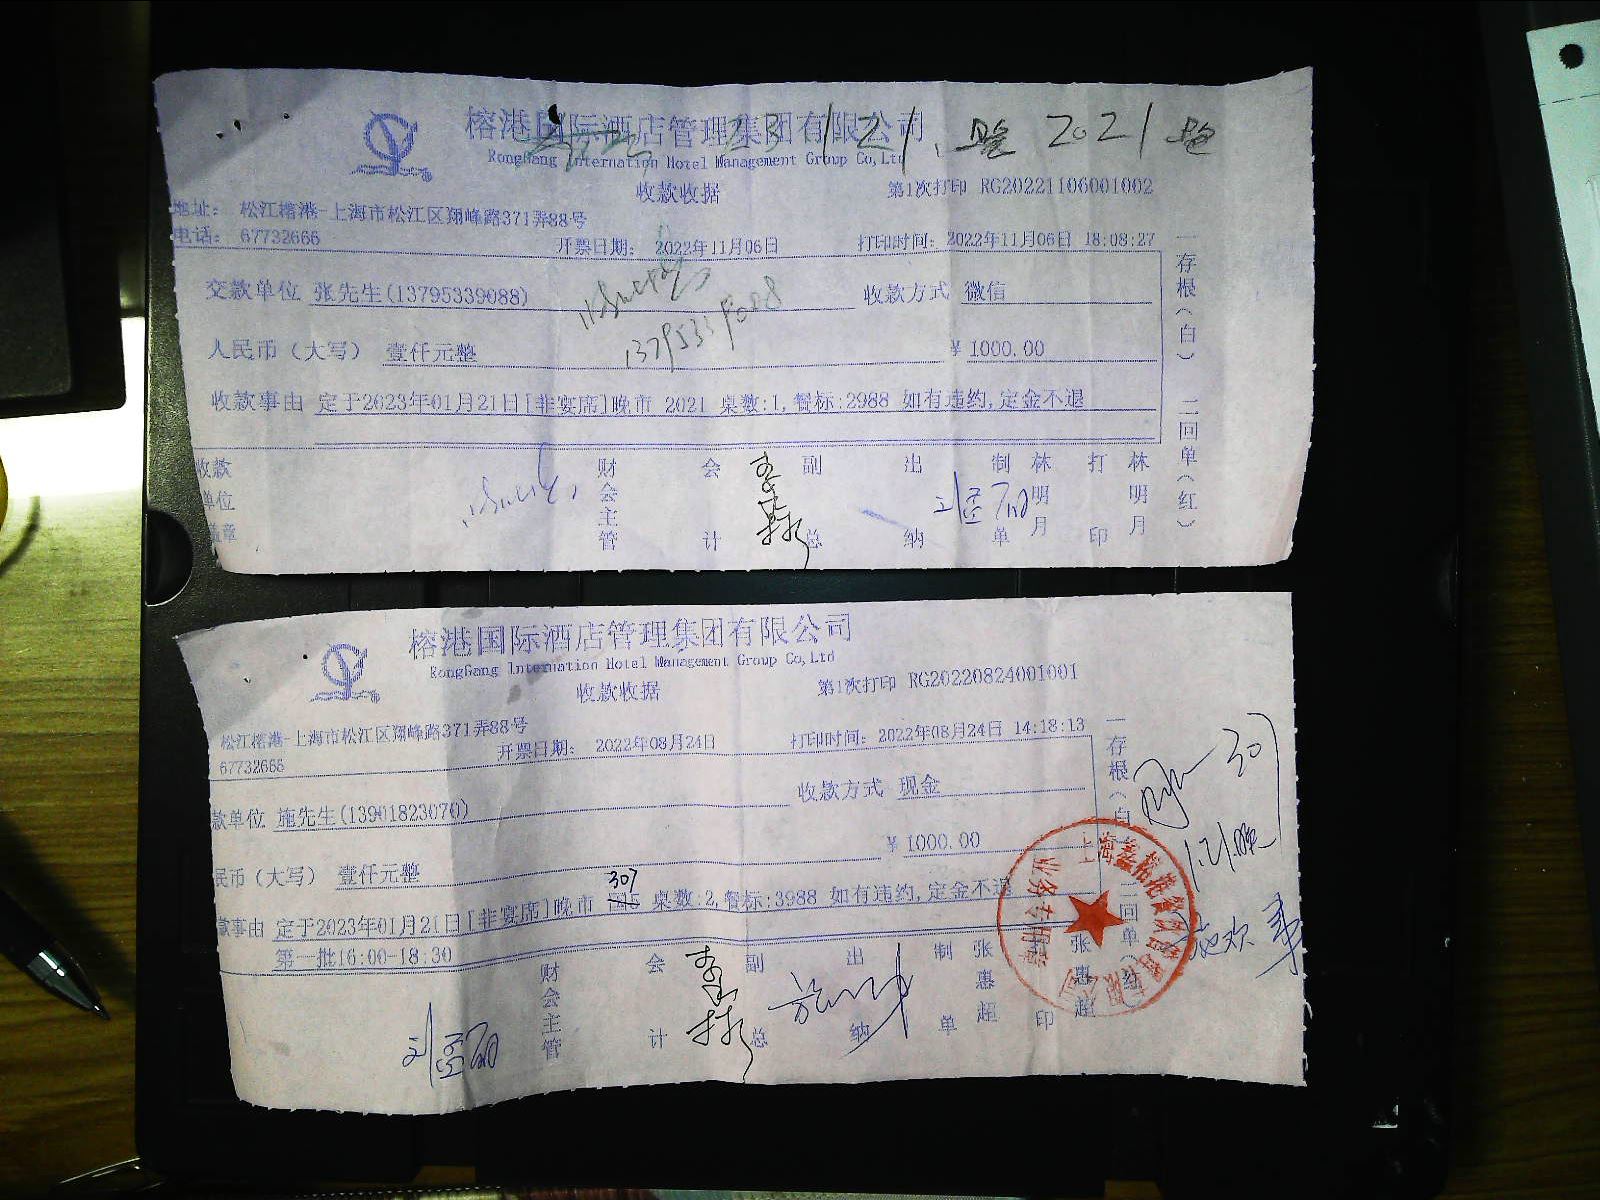 榕港国际酒店管理集团有限公司
RongGang Internation Hotel Management Group Co,Ltd
23 1/21. 2021
收款收据
第1次打印 RG20221106001002
地址: 松江榕港-上海市松江区翔峰路371弄88号
电话: 67732666
开票日期: 2022年11月06日
打印时间: 2022年11月06日 18:08:27
交款单位 张先生(13795339088)
收款方式 微信
人民币（大写） 壹仟元整
¥ 1000.00
收款事由 定于2023年01月21日[非宴席]晚市 2021 桌数:1,餐标:2988 如有违约,定金不退
收款单位盖章 财会主管 会计 副总 出纳 制单 林明月 打印 林明月
一存根(白) 二回单(红)
榕港国际酒店管理集团有限公司
RongGang Internation Hotel Management Group Co,Ltd
收款收据
第1次打印 RG20220824001001
松江榕港-上海市松江区翔峰路371弄88号
67732666
开票日期: 2022年08月24日
打印时间: 2022年08月24日 14:18:13
款单位 施先生(13901823070)
收款方式 现金
民币（大写） 壹仟元整
¥ 1000.00
307
款事由 定于2023年01月21日[非宴席]晚市 桌数:2,餐标:3988 如有违约,定金不退
第一批16:00-18:30
财会主管 会计 副总 出纳 制单 张惠超 打印 张惠超
一存根(白) 二回单(红)
307
1.21晚
业务专用章